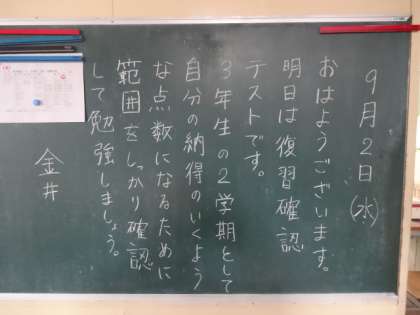 9月2日(水)
おはようございます。
明日は復習確認
テストです。
3年生の2学期として
自分の納得のいくよう
な点数になるために
範囲をしっかり確認
して勉強しましょう。
金井